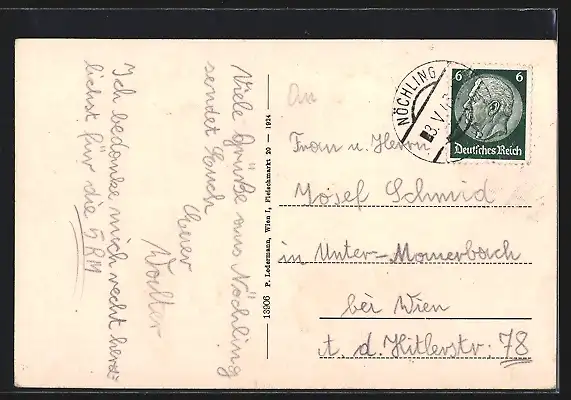 Viele Grüße aus Nöchling
sendet Euch
Euer
Walter
Ich bedanke mich recht herz-
lichst für die 5 RM
13906 P. Ledermann, Wien I, Fleischmarkt 20 — 1934
NÖCHLING
6 6
Deutsches Reich
An
Frau u. Herrn
Josef Schmid
in Unter-Mauerbach
bei Wien
A. d. Hitlerstr. 78